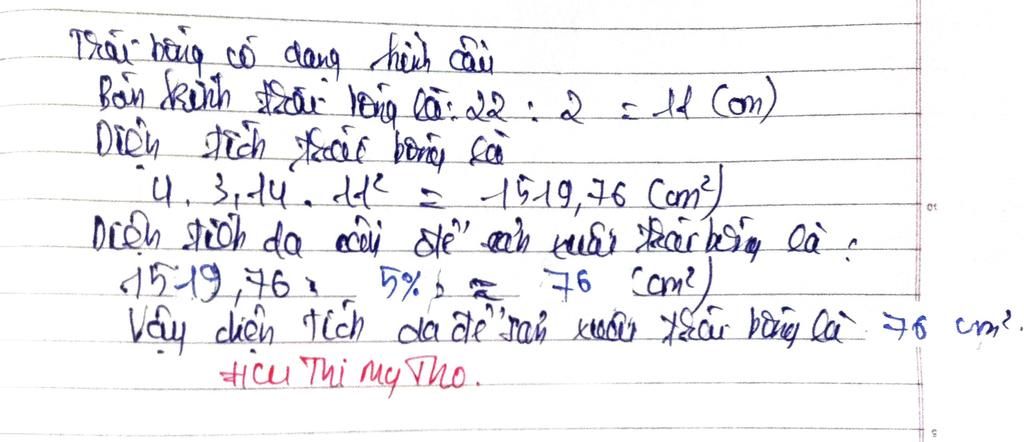 Trái bóng có dạng hình cầu
Bán kính trái bóng là: 22 : 2 = 11 (cm)
Diện tích trái bóng là
4 . 3,14 . 11² = 1519,76 (cm²)
Diện tích da cần để sản xuất trái bóng là :
1519,76 . 5% = 76 (cm²)
Vậy diện tích da để sản xuất trái bóng là 76 cm².
Thi My Tho.